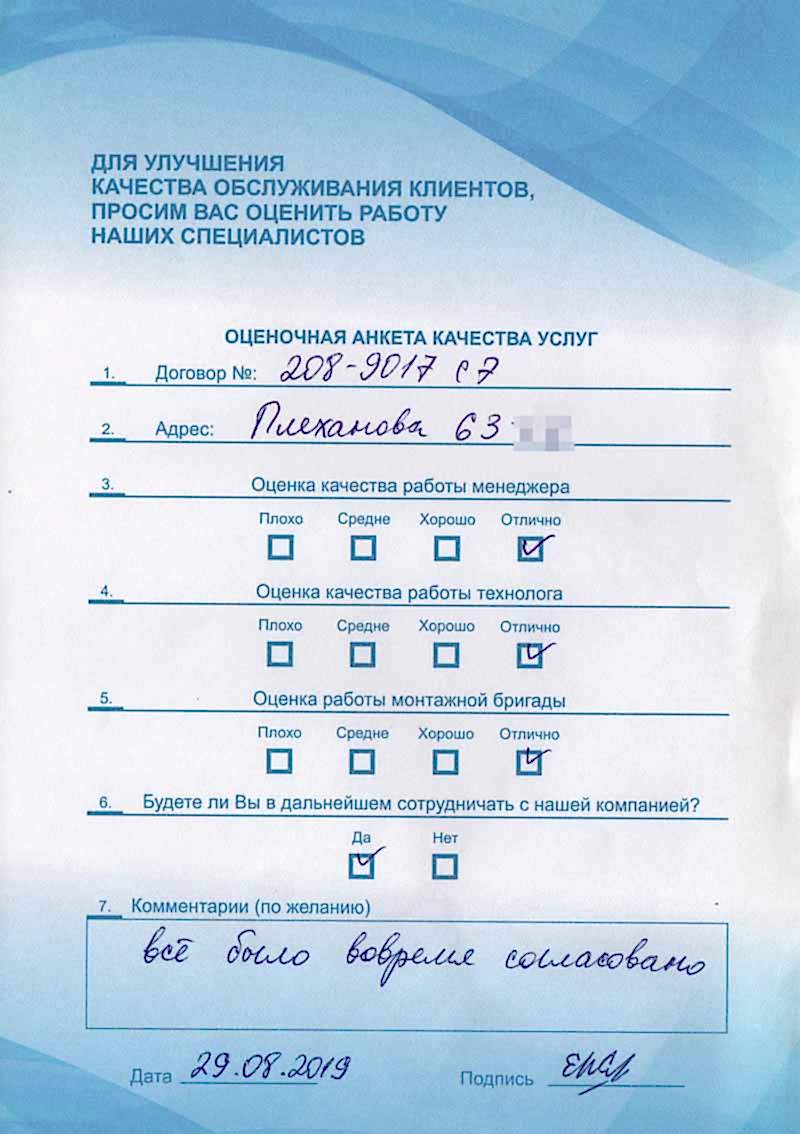 ДЛЯ УЛУЧШЕНИЯ
КАЧЕСТВА ОБСЛУЖИВАНИЯ КЛИЕНТОВ,
ПРОСИМ ВАС ОЦЕНИТЬ РАБОТУ
НАШИХ СПЕЦИАЛИСТОВ
ОЦЕНОЧНАЯ АНКЕТА КАЧЕСТВА УСЛУГ
1. Договор №: 208-9017 с7
2. Адрес: Плеханова 63
3. Оценка качества работы менеджера
Плохо Средне Хорошо Отлично
4. Оценка качества работы технолога
Плохо Средне Хорошо Отлично
5. Оценка работы монтажной бригады
Плохо Средне Хорошо Отлично
6. Будете ли Вы в дальнейшем сотрудничать с нашей компанией?
Да Нет
7. Комментарии (по желанию)
всё было вовремя согласовано
Дата 29.08.2019 Подпись